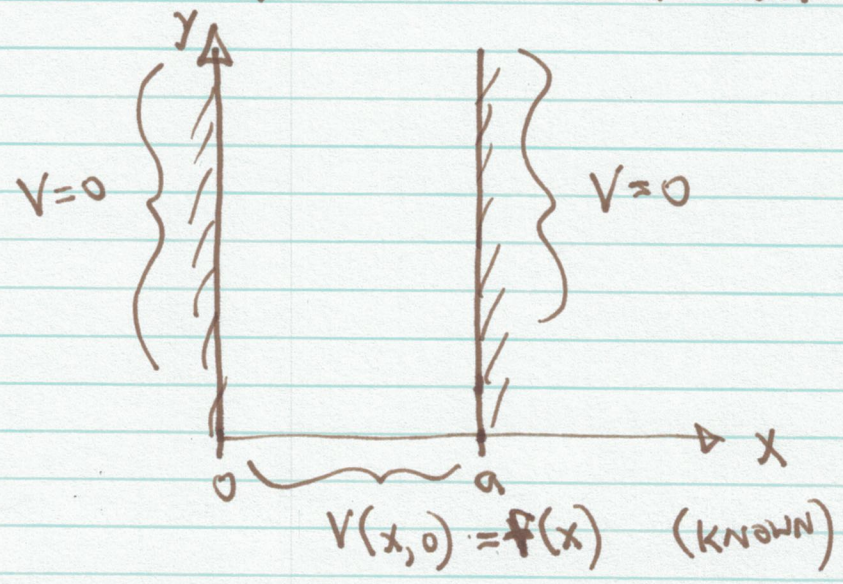 y
V=0
V=0
x
0
a
V(x,0) = f(x) (KNOWN)